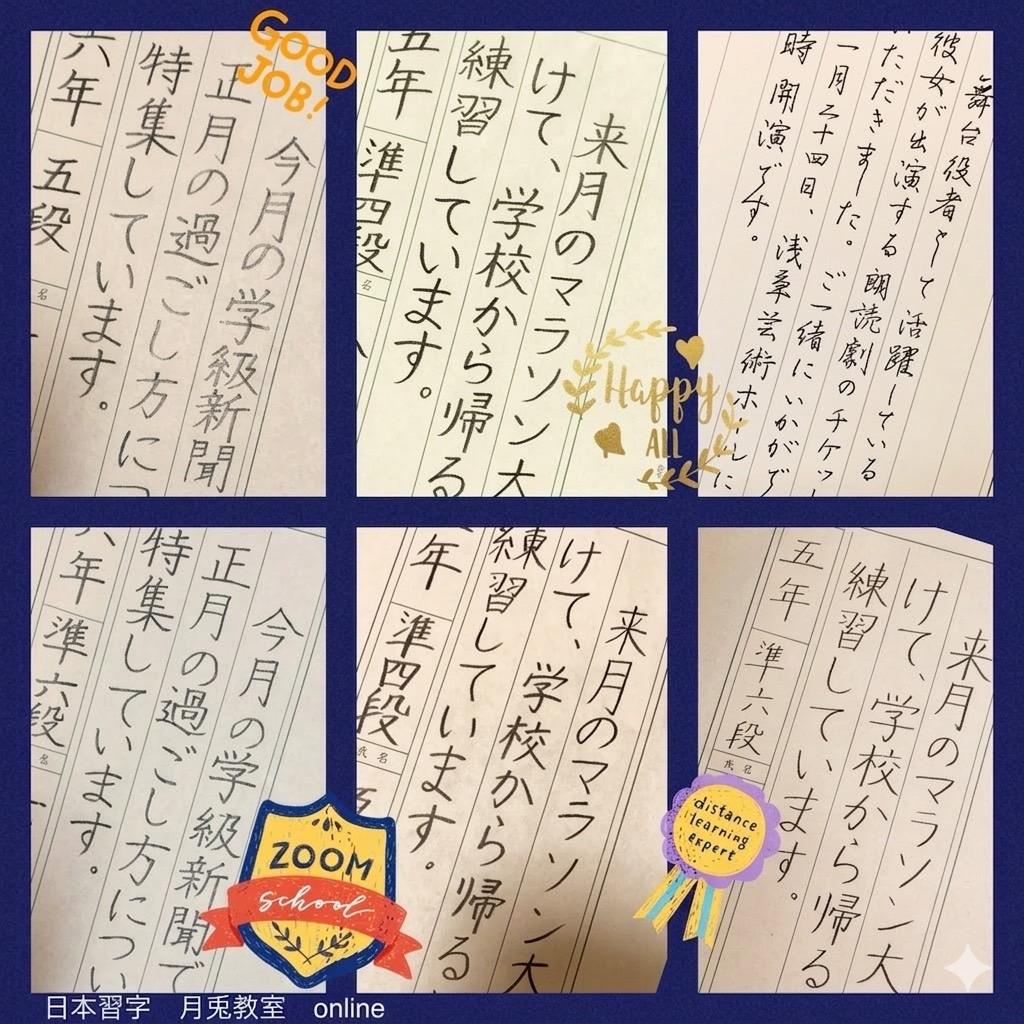 GOOD
JOB!
今月の学級新聞
正月の過ごし方につ
特集しています。
六年 五段
名
来月のマラソン大
けて、学校から帰る
練習しています。
五年 準四段
名
Happy
ALL
舞台役者として活躍している
彼女が出演する朗読劇のチケッ
ただきました。ご一緒にいかがで
一月二十四日、浅草芸術ホールに
時開演です。
今月の学級新聞で
正月の過ごし方につい
特集しています。
年 準六段
名
ZOOM
school
来月のマラソン大
けて、学校から帰る
練習しています。
年 準四段
氏名
distance
learning
expert
来月のマラソン大
けて、学校から帰る
練習しています。
五年 準六段
氏名
日本習字 月兎教室 online